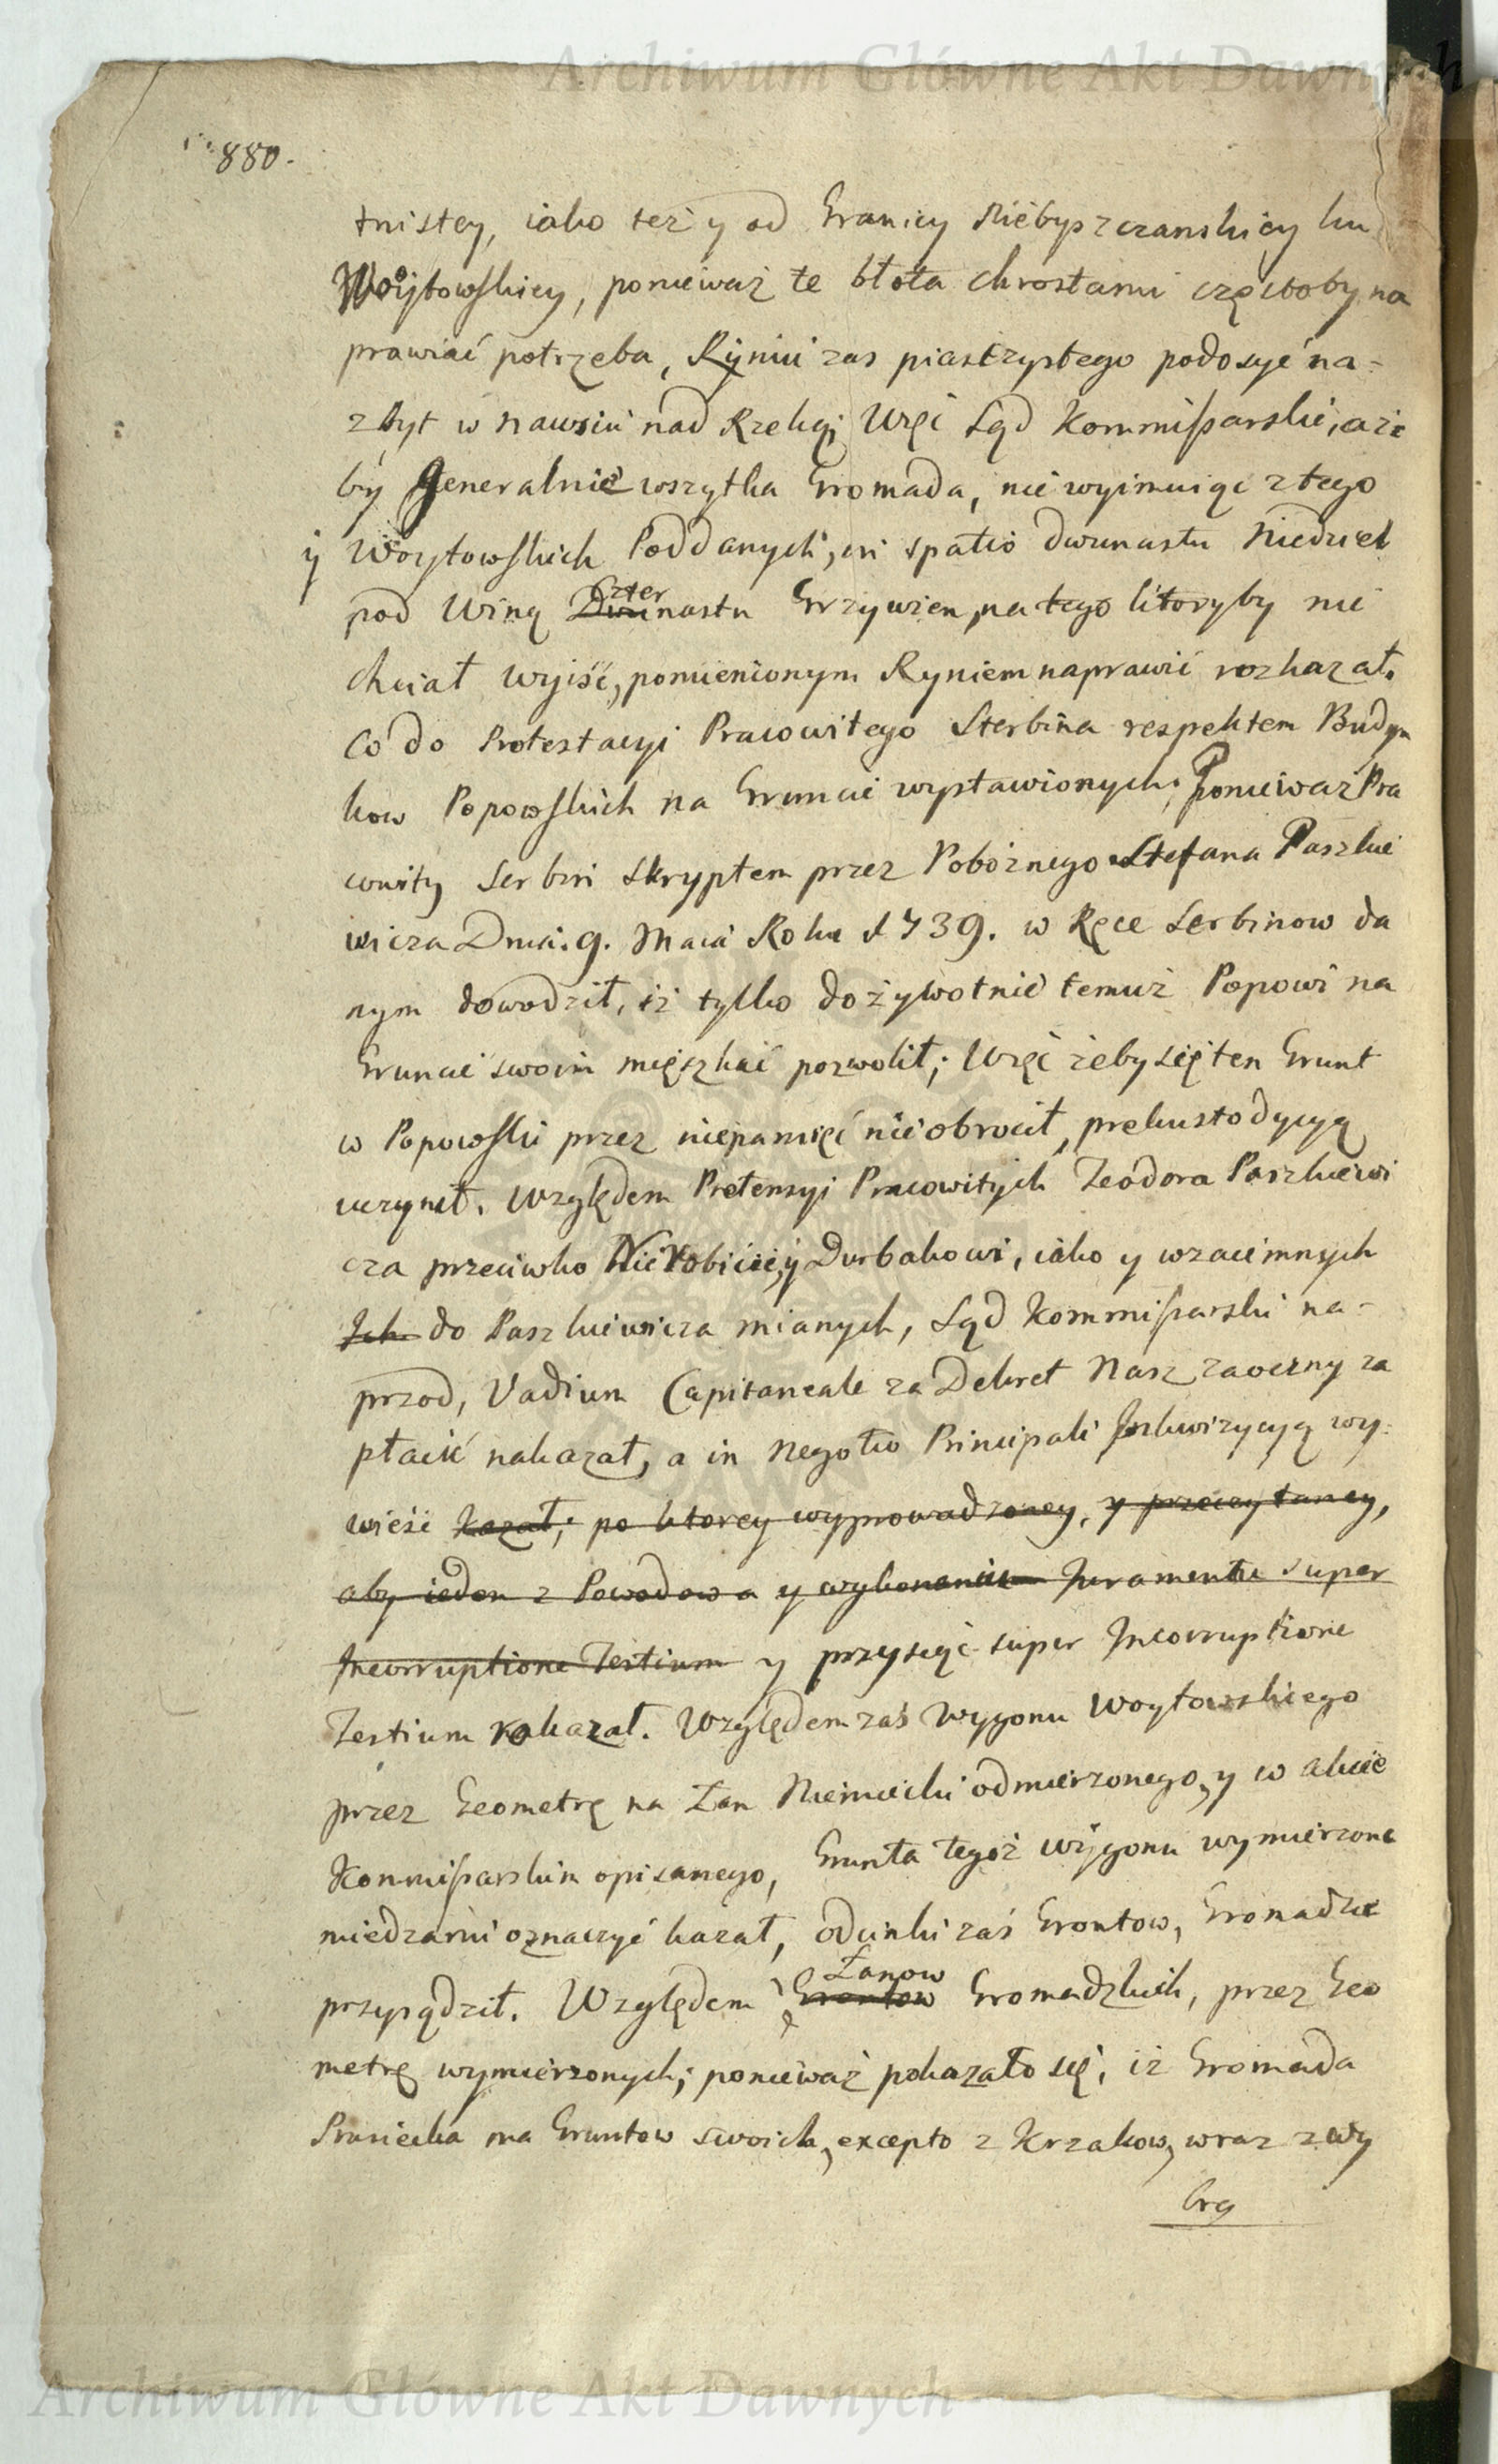 880.
tnistey, iako też y od Granicy Niebyszczanskiey ku
Woÿtowskiey, ponieważ te błota chrostami częstoby na
prawiać potrzeba, Ryniu zas piasczystego podosyć na-
zbyt w nawsiu nad Rzeką; Więc Sąd Kommissarski, aże
by generalnie wszytka Gromada, nie wyimuiąc z tego
ÿ Woytowskich Poddanych, in spatio dwunastu Niedziel
pod Winą Czternastu Grzywien, na tego ktoryby nie
chciał wyjść, pomienionym Ryniem naprawić rozkazał.
Co do Protestacyi Pracowitego Sterbina respektem Budyn
kow Popowskich na Gruncie wystawionych; Ponieważ Pra
cowity Serbin Skryptem przez Pobożnego Stefana Paszkie
wicza Dnia. 9. Maia Roku 1739. w Ręce Serbinow da
nym dowodził, iż tylko dożywotnie temuż Popowi na
Gruncie swoim mięszkać pozwolił; Więc żeby się ten Grunt
w Popowski przez niepamięć nie obrocił, prekustodycyą
uczynił. Względem Pretensyi Pracowitych Teodora Paszkiewi
cza przeciwko Durbakowi, iako y wzaiemnych
Ich do Paszkiewicza mianych, Sąd Kommissarski na-
przod, Vadium Capitaneale za Dekret Nasz zaoczny za
płacić nakazał, a in Negotio Principali Inkwizycyą wy-
wieść kazał; po ktorey wyprowadzoney, y przeczytaney,
aby ieden z Powodow a y wykonaniu Juramentu super
Incorruptione Testium y przysięć super Incorruptione
Testium nakazał. Względem zaś Wygonu Woytowskiego
przez Geometrę na Łan Niemiecki odmierzonego, y w akcie
Kommissarskim opisanego, Grunta tegoż wÿgonu wymierzone
miedzami oznaczyć kazał, odcinki zaś Grontow, Gromadzie
przysądził. Względem Grontow Łanow Gromadzkich, przez Geo
metrę wymierzonych; ponieważ pokazało się, iż Gromada
Prusiecka ma Gruntow swoich, excepto z Krzakow, wraz z wy
bra